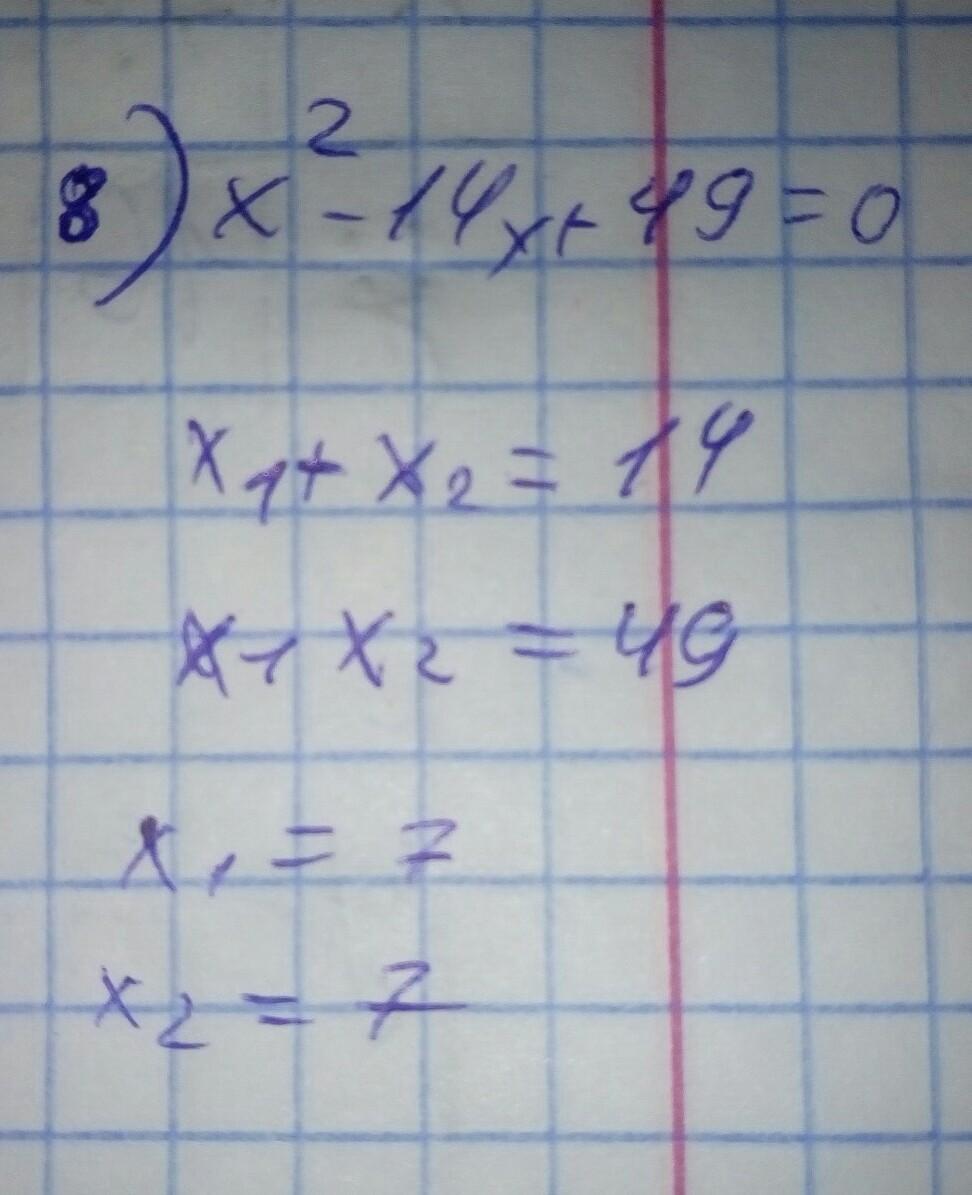 8) x² - 14x + 49 = 0
x₁ + x₂ = 14
x₁ x₂ = 49
x₁ = 7
x₂ = 7